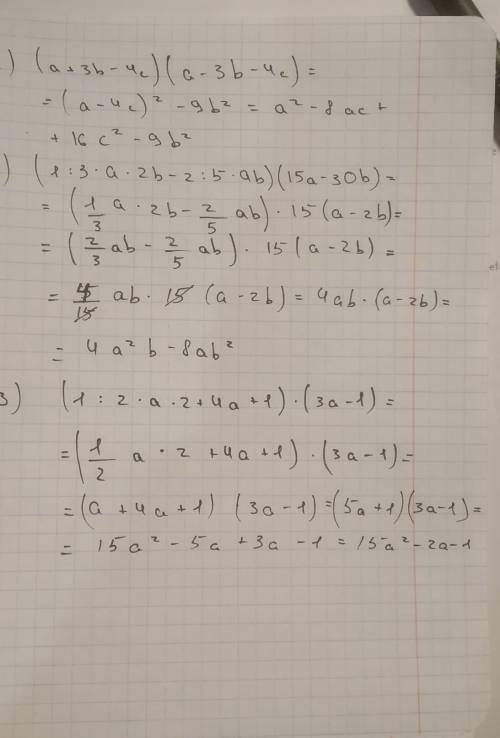 ) (a+3b-4c)(a-3b-4c)=
=(a-4c)² -9b² = a²-8ac+
+16c²-9b²
) (1:3·a·2b-2:5·ab)(15a-30b)=
=(1/3 a·2b-2/5 ab)·15(a-2b)=
=(2/3 ab-2/5 ab)·15(a-2b)=
=4/15 ab·15(a-2b)=4ab·(a-2b)=
=4a²b-8ab²
3) (1:2·a·2+4a+1)·(3a-1)=
=(1/2 a·2+4a+1)·(3a-1)=
=(a+4a+1)(3a-1)=(5a+1)(3a-1)=
=15a²-5a+3a-1=15a²-2a-1